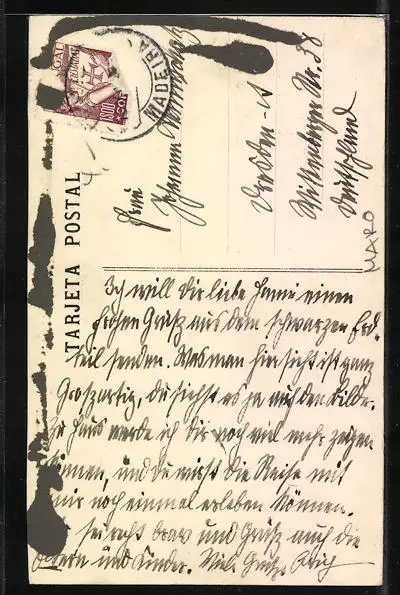 TARJETA POSTAL
MADEIRA
1$00
COR
Frau
Johanna
Dresden-
Wittenberger Nr. 38
Deutschland
MARO
Ich will dir liebe Hanni einen
frohen Grusz aus dem schwarzen Erd-
teil senden. Was man hier sieht ist ganz
Groszartig, du siehst es ja auf den Bilde.
zu Haus werde ich dir noch viel mehr zeigen
können, und du wirst die Reise mit
mir noch einmal erleben können.
sei recht brav und Grüsz auch die
Eltern und Kinder. Viele Grüsze Erich